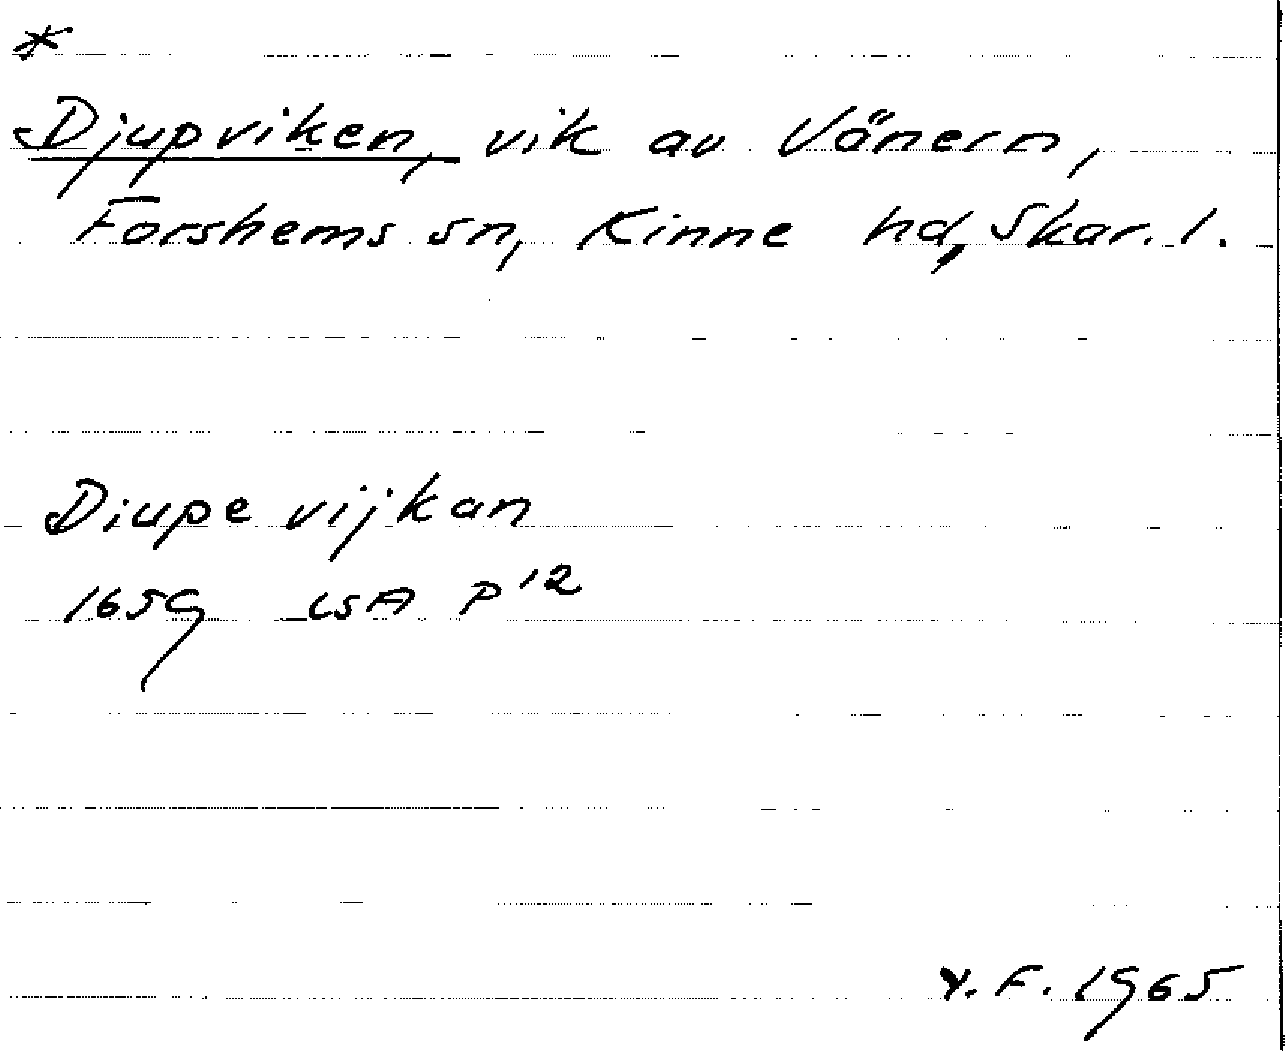 *
Djupviken, vik av Vänern,
Forshems sn, Kinne hd, Skar. l.
Diupe vijkan
1659 LSA P 12
V. F. 1965